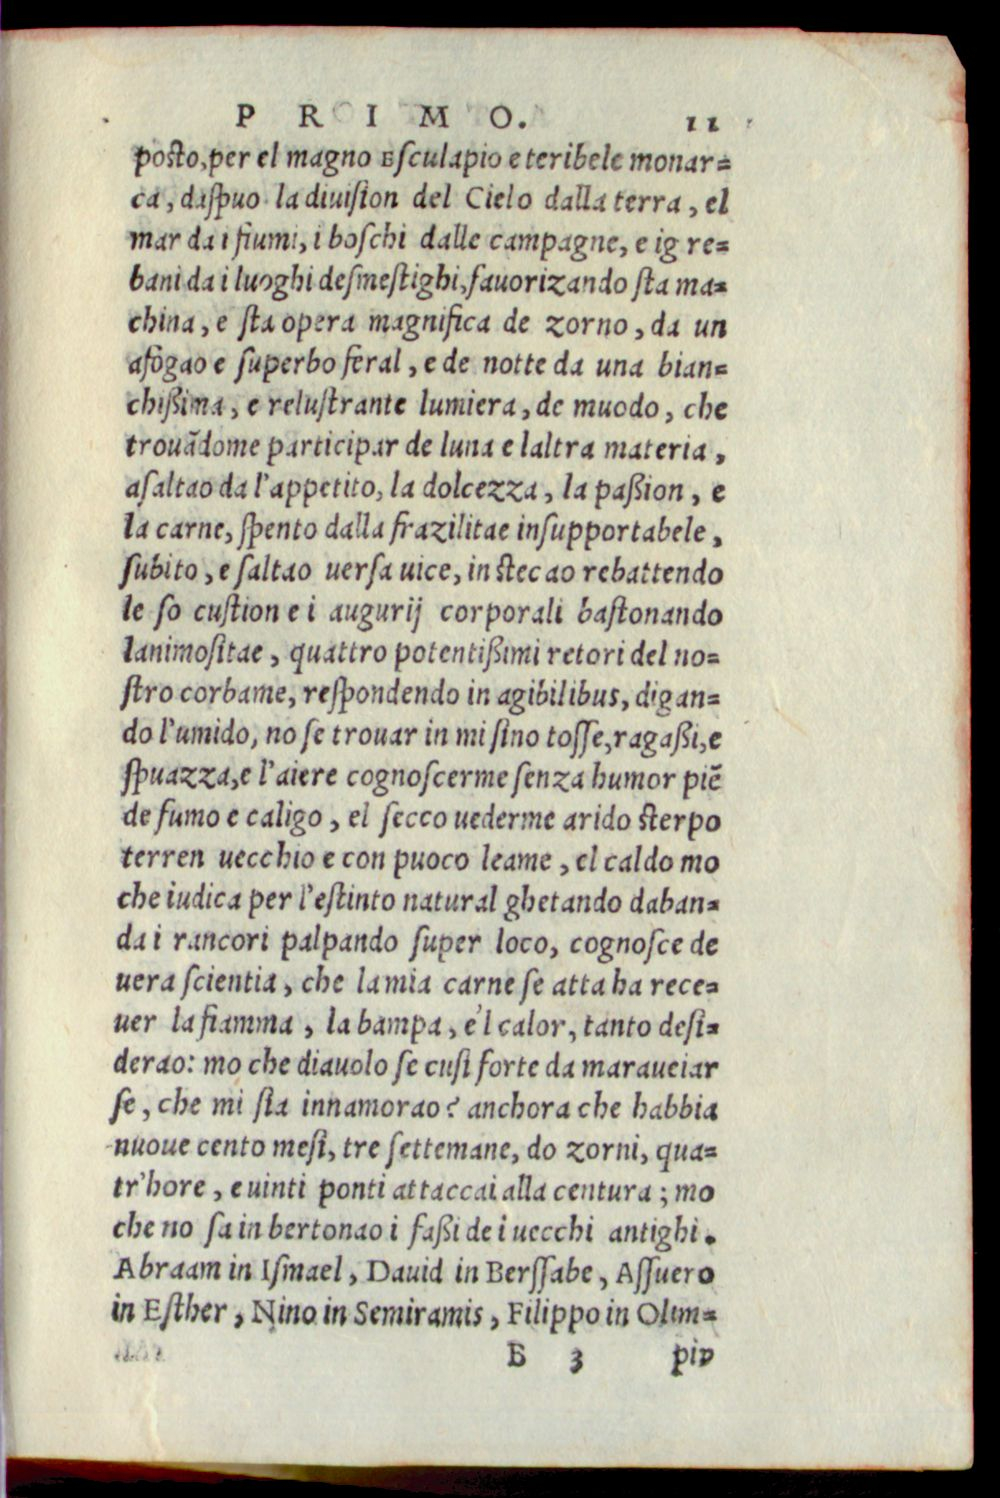 PRIMO. 11
posto,per el magno Esculapio e teribele monar=
ca, daſpuo la diuiſion del Cielo dalla terra, el
mar da i fiumi, i boſchi dalle campagne, e ig re=
bani da i luoghi deſmeſtighi,fauorizando ſta ma=
china, e ſta opera magnifica de zorno, da un
afogao e ſuperbo feral, e de notte da una bian=
chißima, e reluſtrante lumiera, de muodo, che
trouãdome participar de luna e laltra materia,
aſaltao da l'appetito, la dolcezza, la paßion, e
la carne, ſpento dalla frazilitae inſupportabele,
ſubito, e ſaltao uerſa uice, in stecao rebattendo
le ſo custion e i augurij corporali baſtonando
lanimoſitae, quattro potentißimi retori del no=
ſtro corbame, reſpondendo in agibilibus, digan=
do l'umido, no ſe trouar in mi ſino toſſe,ragaßi,e
ſpuazza,e l'aiere cognoſcerme ſenza humor piẽ
de fumo e caligo, el ſecco uederme arido sterpo
terren uecchio e con puoco leame, el caldo mo
che iudica per l'eſtinto natural ghetando daban=
da i rancori palpando ſuper loco, cognoſce de
uera ſcientia, che la mia carne ſe atta ha rece=
uer la fiamma, la bampa, e'l calor, tanto deſi=
derao: mo che diauolo ſe cuſi forte da maraueiar
ſe, che mi ſta innamorao? anchora che habbia
nuoue cento meſi, tre ſettemane, do zorni, qua=
tr'hore, e uinti ponti attaccai alla centura; mo
che no ſa in bertonao i faßi de i uecchi antighi.
Abraam in Iſmael, Dauid in Berſſabe, Aſſuero
in Eſther, Nino in Semiramis, Filippo in Olim=
B 3 pia